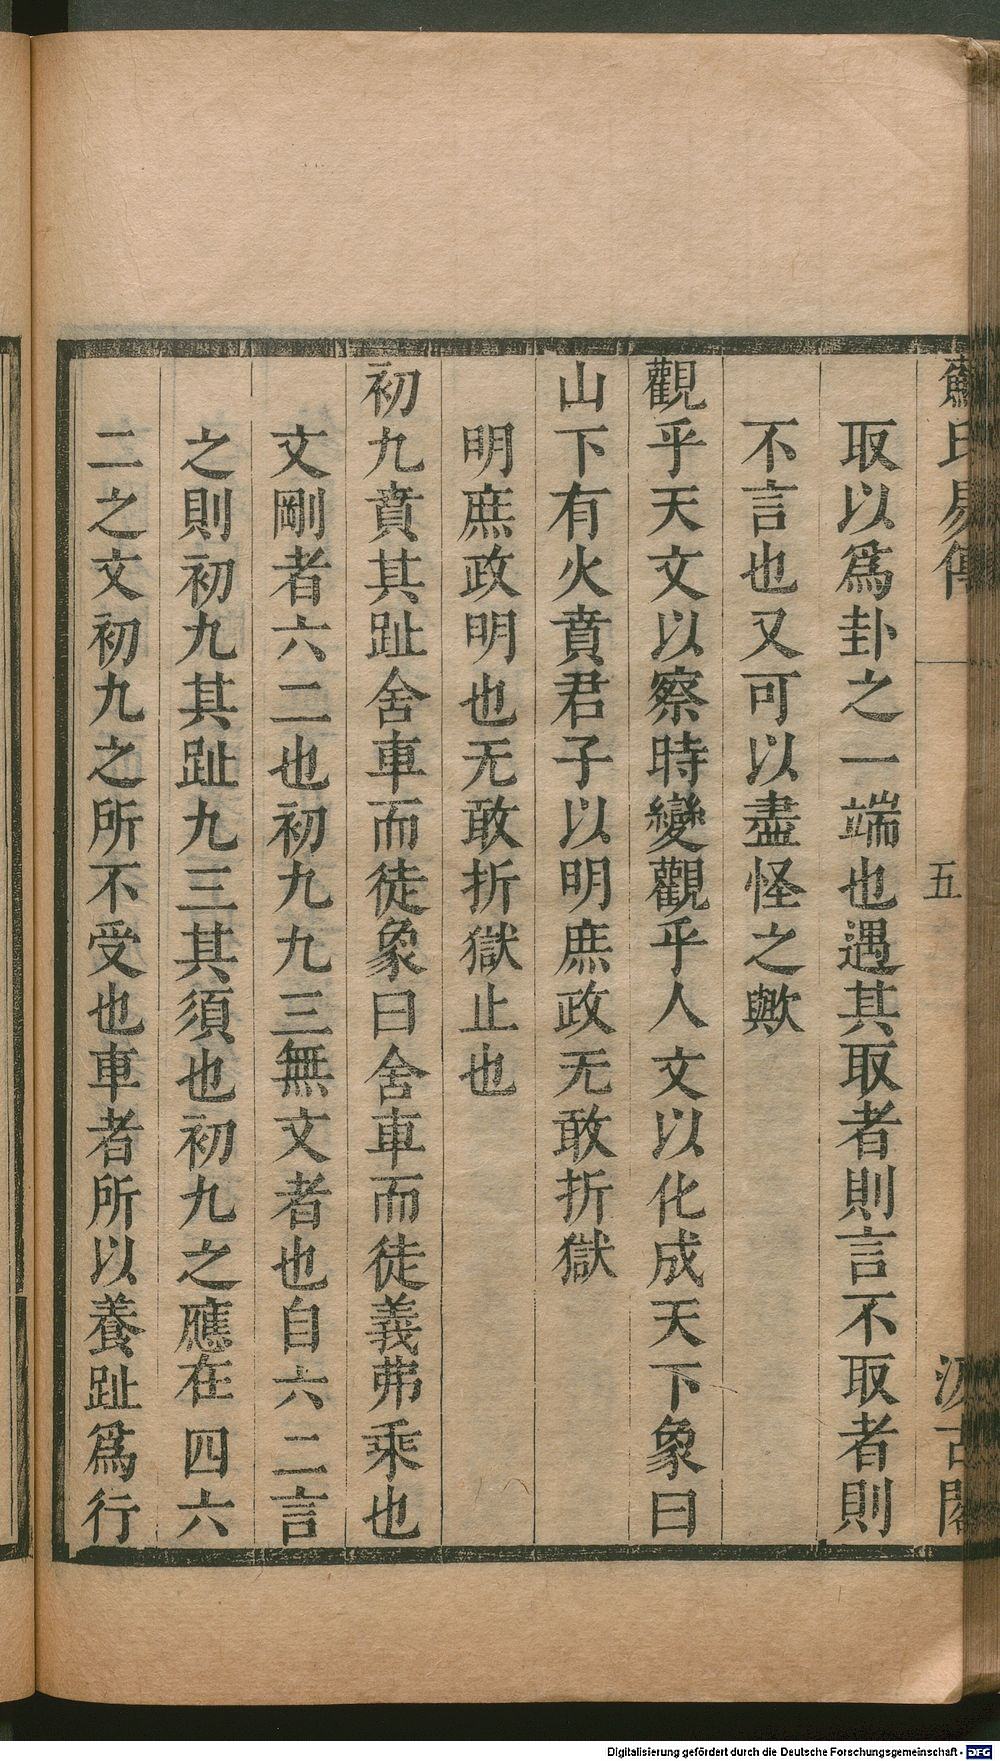 蘇氏易傳 五 汲古閣
取以爲卦之一端也遇其取者則言不取者則
不言也又可以盡怪之歟
觀乎天文以察時變觀乎人文以化成天下象曰
山下有火賁君子以明庶政无敢折獄
明庶政明也无敢折獄止也
初九賁其趾舍車而徒象曰舍車而徒義弗乘也
文剛者六二也初九九三無文者也自六二言
之則初九其趾九三其須也初九之應在四六
二之文初九之所不受也車者所以養趾爲行
Digitalisierung gefördert durch die Deutsche Forschungsgemeinschaft - DFG